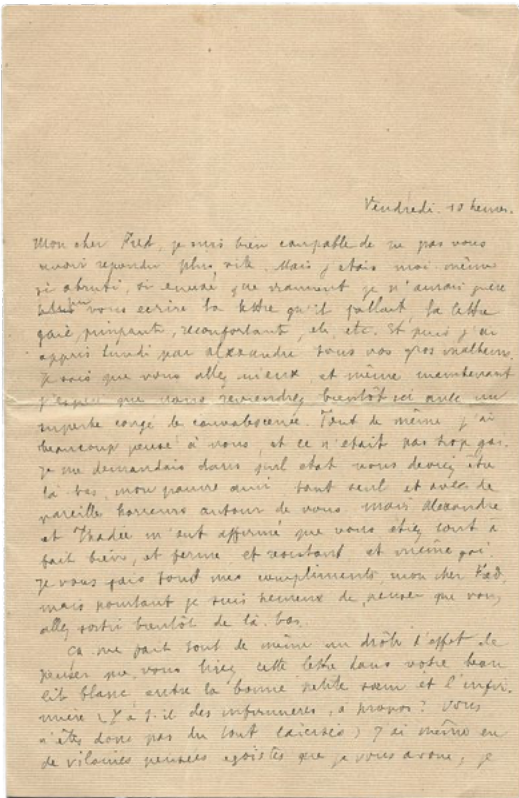 Vendredi. 10 heures.
Mon cher Fred, je suis bien coupable de ne pas vous
avoir repondu plus vite. Mais j'etais moi-même
si abruti, si enervé, que vraiment je n'aurais guère
pu vous ecrire la lettre qu'il fallait, la lettre
gaie, pimpante, reconfortante, etc, etc. Et puis j'ai
appris lundi par Alexandre tous vos gros malheurs.
Je sais que vous allez mieux, et même maintenant
j'espère que vous reviendrez bientôt ici avec un
superbe congé de convalescence. Tout de même j'ai
beaucoup pensé à vous, et ce n'etait pas trop gai.
Je me demandais dans quel etat vous deviez être
là bas, mon pauvre ami tout seul et avec de
pareilles horreurs autour de vous. Mais Alexandre
et Thadée m'ont affirmé que vous étiez tout à
fait bien, et ferme et resistant et même gai.
Je vous fais tous mes compliments, mon cher Fred,
mais pourtant je suis heureux de penser que vous
allez sortir bientôt de là-bas.
Ça me fait tout de même un drôle d'effet de
penser que vous lirez cette lettre dans votre beau
lit blanc entre la bonne petite sœur et l'infir-
mière (Y a-t-il des infirmières, à propos? Vous
n'êtes donc pas du tout laïcisés) J'ai même eu
de vilaines pensées egoïstes que je vous avoue, je